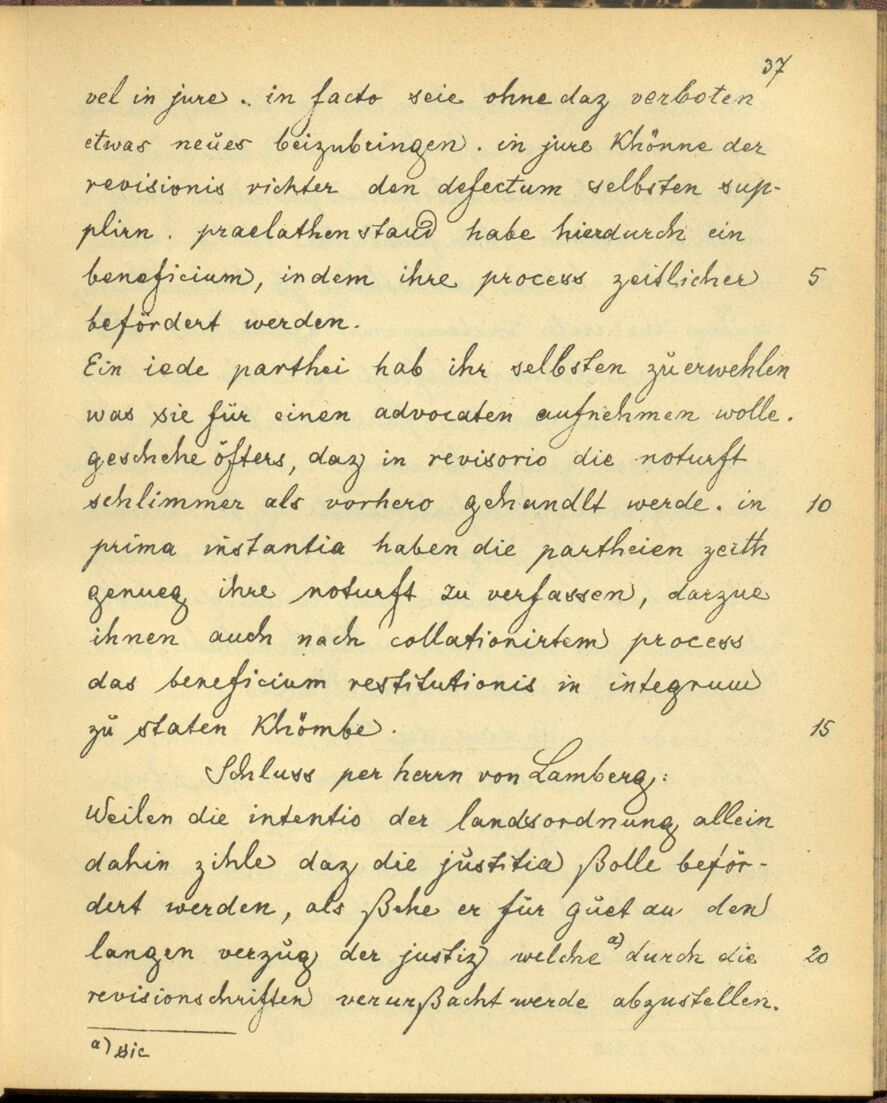 37
vel in jure. in facto seie ohne daz verboten
etwas neües beizubringen. in jure Khönne der
revisionis richter den defectum selbsten sup-
plirn. praelathenstand habe hierdurch ein
beneficium, indem ihre process zeitlicher 5
befördert werden.
Ein iede parthei hab ihr selbsten zü erwehlen
was sie für einen advocaten aufnehmen wolle.
geschehe öfters, daz in revisorio die noturft
schlimmer als vorhero gehandlt werde. in 10
prima instantia haben die partheien zeith
genueg ihre noturft zu verfassen, darzue
ihnen auch nach collationirtem process
das beneficium restitutionis in integrum
zü staten Khömbe. 15
Schluss per herrn von Lamberg:
Weilen die intentio der landsordnung allein
dahin zihle daz die jüstitia ßolle beför-
dert werden, als ßehe er für güet an den
langen verzüg der justiz welche a) durch die 20
revisionschriften verurßacht werde abzustellen.
a) sic